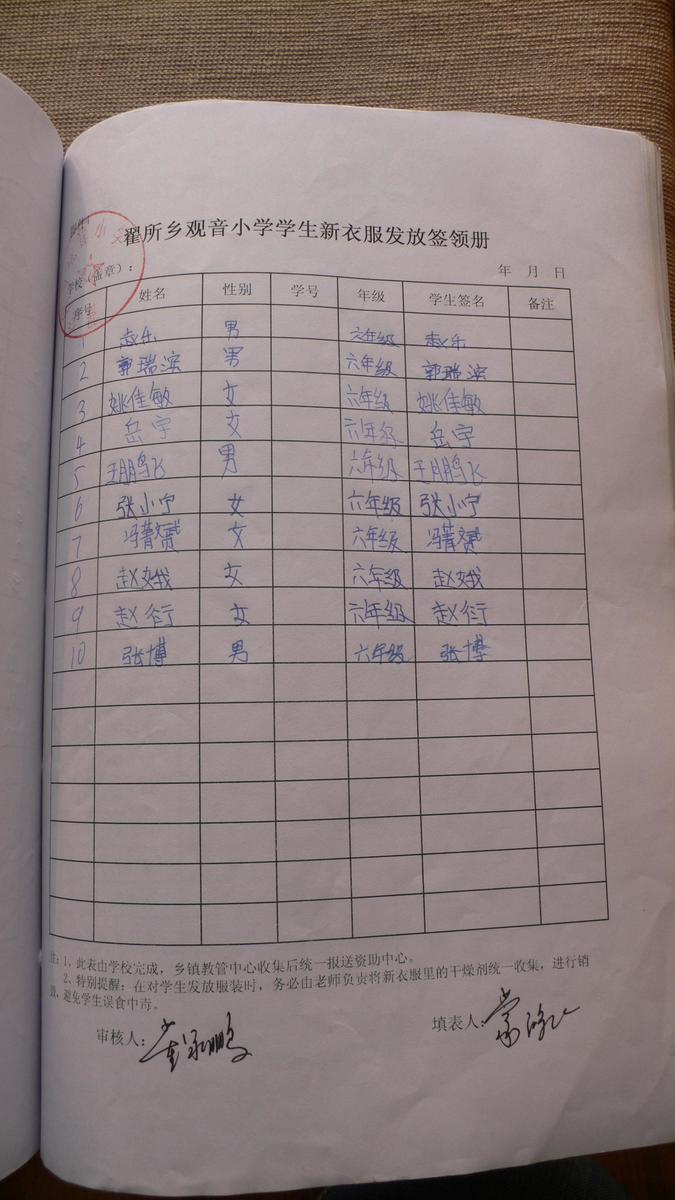 翟所乡观音小学学生新衣服发放签领册
学校（盖章）： 年 月 日
序号 姓名 性别 学号 年级 学生签名 备注
1 赵乐 男 六年级 赵乐
2 郭瑞滨 男 六年级 郭瑞滨
3 姚佳敏 女 六年级 姚佳敏
4 岳宇 女 六年级 岳宇
5 王鹏飞 男 六年级 王鹏飞
6 张小宁 女 六年级 张小宁
7 冯菁赟 女 六年级 冯菁赟
8 赵娥 女 六年级 赵娥
9 赵衍 女 六年级 赵衍
10 张博 男 六年级 张博
注：1、此表由学校完成，乡镇教管中心收集后统一报送资助中心。
2、特别提醒：在对学生发放服装时，务必由老师负责将新衣服里的干燥剂统一收集，进行销
毁，避免学生误食中毒。
审核人： 填表人：